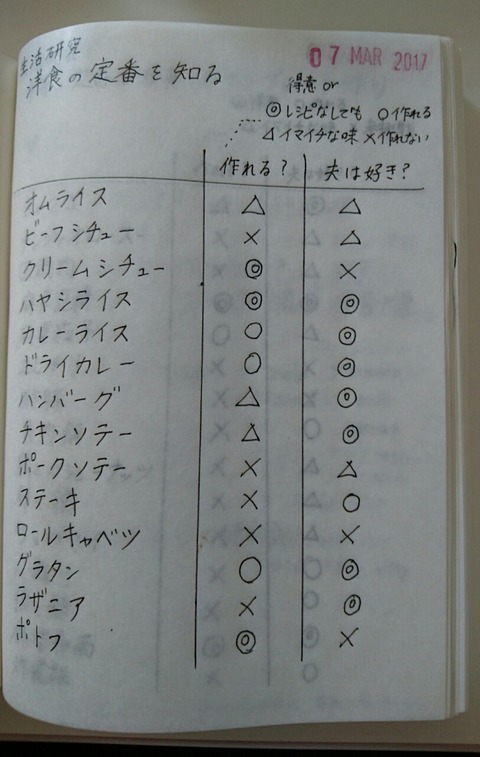 生活研究
洋食の定番を知る
07 MAR 2017
得意 or
◎レシピなしでも ○作れる
△イマイチな味 ×作れない
作れる? 夫は好き?
オムライス △ △
ビーフシチュー × △
クリームシチュー ◎ ×
ハヤシライス ◎ ◎
カレーライス ○ ◎
ドライカレー ○ ◎
ハンバーグ △ ◎
チキンソテー △ ◎
ポークソテー × △
ステーキ × ○
ロールキャベツ × ×
グラタン ○ ◎
ラザニア × ◎
ポトフ ◎ ×